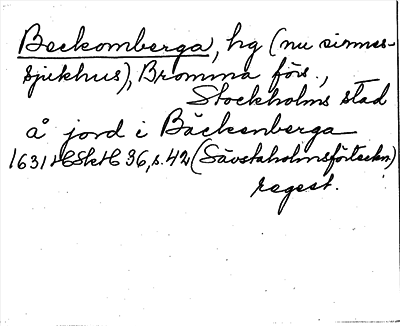 Beckomberga, hg (nu sinnes-
sjukhus), Bromma förs.,
Stockholms stad
å jord i Bäckenberga
1631 HSH 36, s. 42 (Sävstaholmsförteckn)
regest.